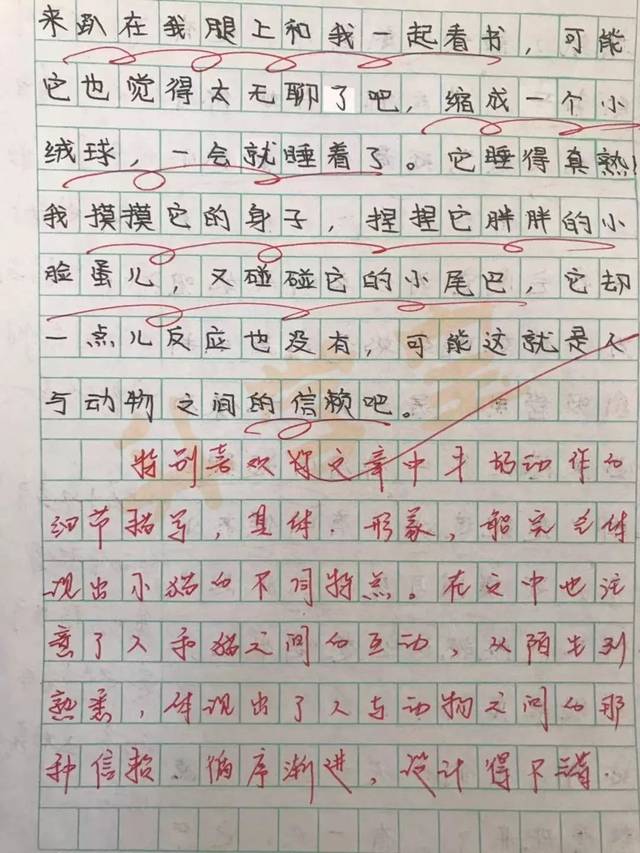 来趴在我腿上和我一起看书，可能
它也觉得太无聊了吧，缩成一个小
绒球，一会就睡着了。它睡得真熟！
我摸摸它的身子，捏捏它胖胖的小
脸蛋儿，又碰碰它的小尾巴，它却
一点儿反应也没有，可能这就是人
与动物之间的信赖吧。
特别喜欢你文章中的动作和
细节描写，具体、形象，能完全体
现出小猫的不同特点。在文中也注
意了人和猫之间的互动，从陌生到
熟悉，体现出了人与动物之间的那
种信赖。循序渐进，设计得不错